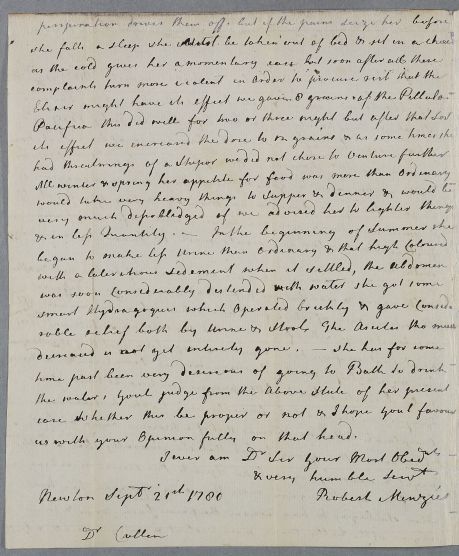 perspiration drives them off. but if the pains seize her before
she falls a sleep she must be taken out of bed & set in a chair
as the cold gives her a momentary ease but soon after all these
complaints turn more violent in order to procure rest that the
might have its effect we gave 8 grains of the Pillulae
Pacificae this did well for two or three night but after that lost
its effect we encreased the dose to grains & as some times she
had threatnings of a Stupor we did not chose to venture further
All winter & spring her appetite for food was more than ordinary
would take very heavy things to Supper & dinner & would be
very much if we advised her to lighter things
& in less Quantity. — In the beginning of Summer she
began to make less Urine then Ordinary & that high Coloured
with a lateritious Sediment when it settled, the Abdomen
was soon Considerably distended with water she got some
smart Hydragogues which operated briskly & gave Conside
rable relief both by Urine & Stools. The Ascites tho much
decreased is not yet intirely gone. — She has for some
time past been very desireous of going to Bath to drink
the water, youl judge from the Above State of her present
case whether this be proper or not & I hope youl favour
us with your Opinion fully on that head.
I ever am Dr Sir your Most Obedt
& very humble Servt
Newton Sept 21st 1780 Robert Menzies
Dr Cullen